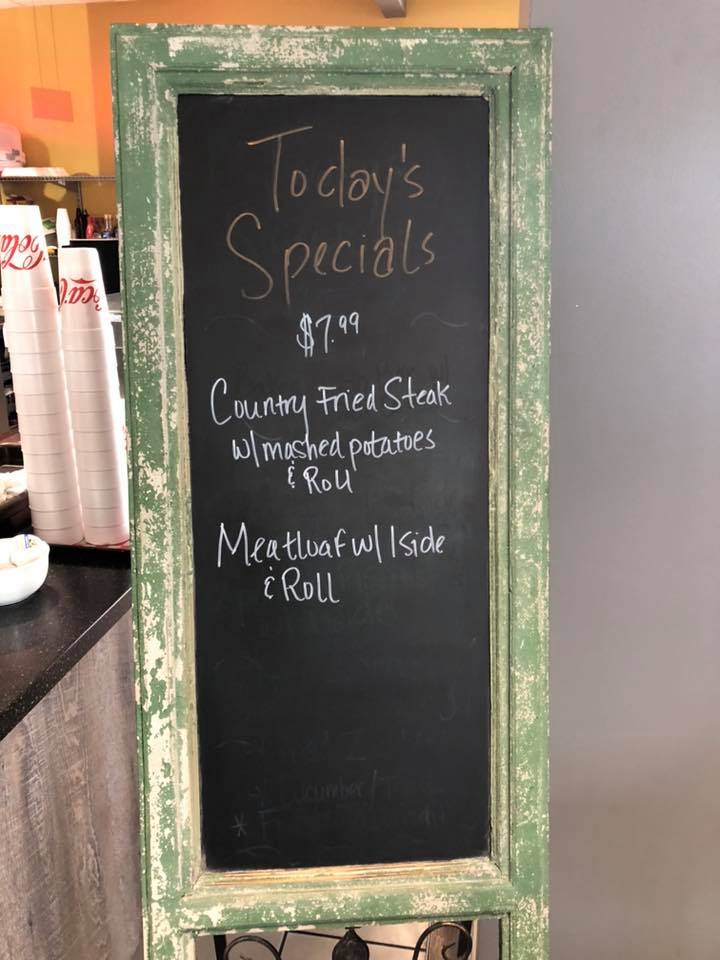 Today's
Specials
$7.99
Country Fried Steak
w/ mashed potatoes
& Roll
Meatloaf w/ 1 side
& Roll